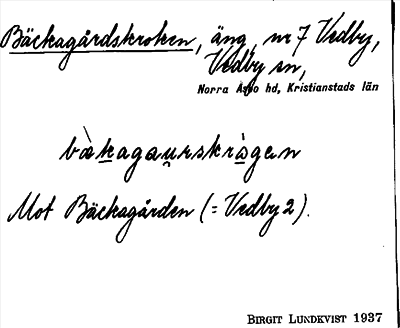 Bäckagårdskroken, äng, nr 7 Vedby,
Vedby sn,
Norra Åsbo hd, Kristianstads län
bàkagaurskràgan
Mot Bäckagården (= Vedby 2).
BIRGIT LUNDKVIST 1937